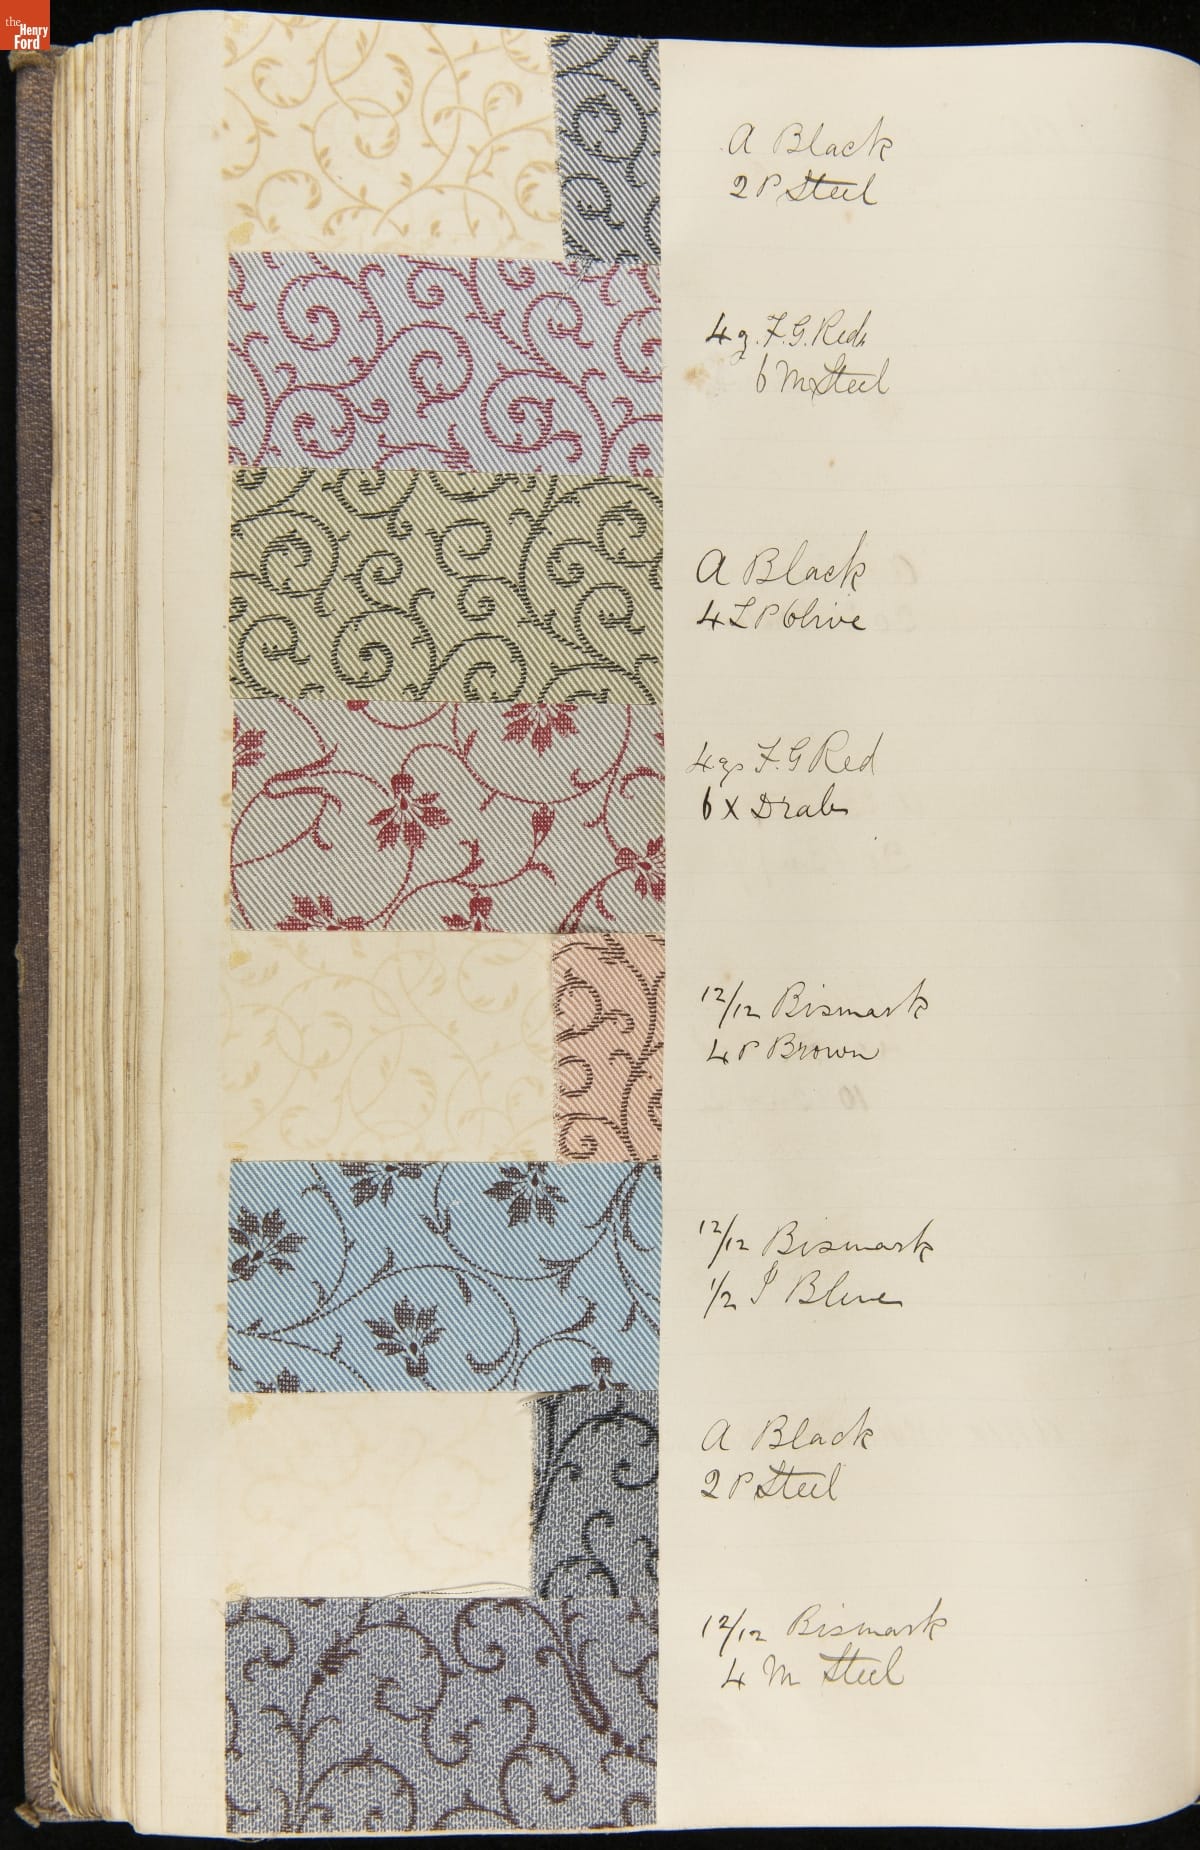 the Henry Ford
A Black
2 P Steel
4 g. F. G. Reds
6 M Steel
A Black
4 L P Olive
4 gs F. G Red
6 X Drabs
12/12 Bismark
4 P Brown
12/12 Bismark
1/2 P Blue
A Black
2 P Steel
12/12 Bismark
4 M Steel